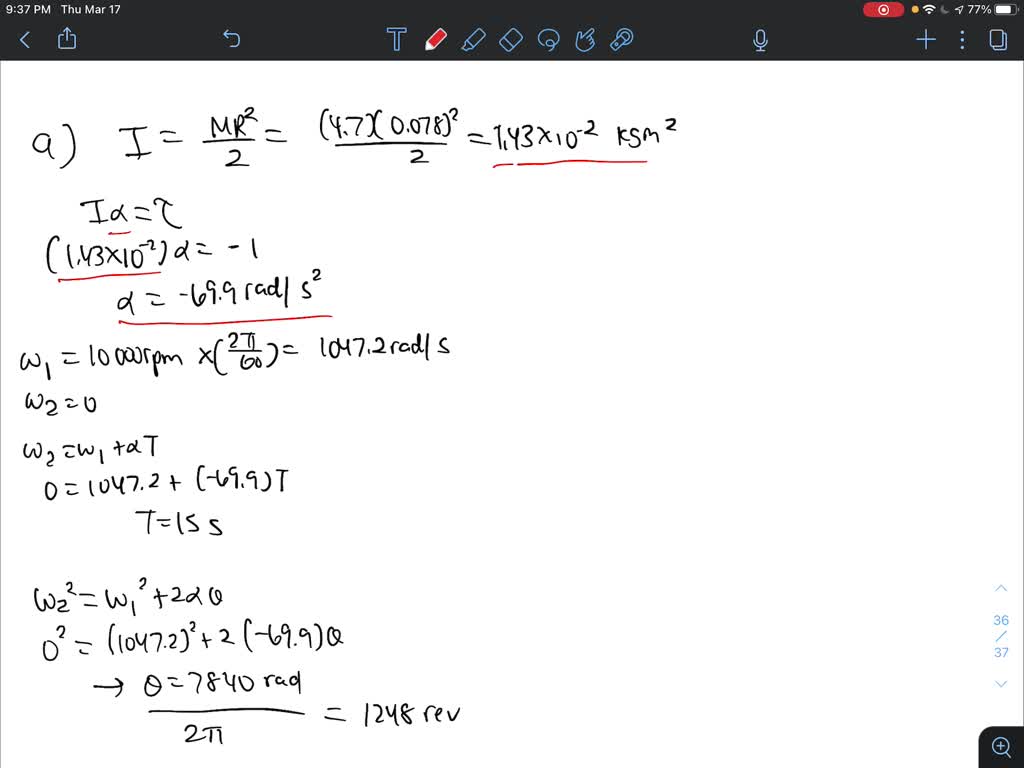 9:37 PM Thu Mar 17
77%
a) I = MR²/2 = (4.7)(0.078)²/2 = 1.43×10⁻² kgm²
Iα = τ
(1.43×10⁻²)α = -1
α = -69.9 rad/s²
ω₁ = 10000rpm ×(2π/60) = 1047.2 rad/s
ω₂ = 0
ω₂ = ω₁ + αT
0 = 1047.2 + (-69.9)T
T = 15 s
ω₂² = ω₁² + 2αθ
0² = (1047.2)² + 2(-69.9)θ
→ θ = 7840 rad/2π = 1248 rev
36
/
37